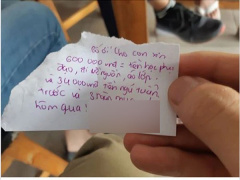 Bà ơi cho con xin
600 000 mđ = tiền học phí
đạo, tí về nguồn, áo lớp
và 34 000 mđ tiền ngủ tuần
trước và 
hôm qua!